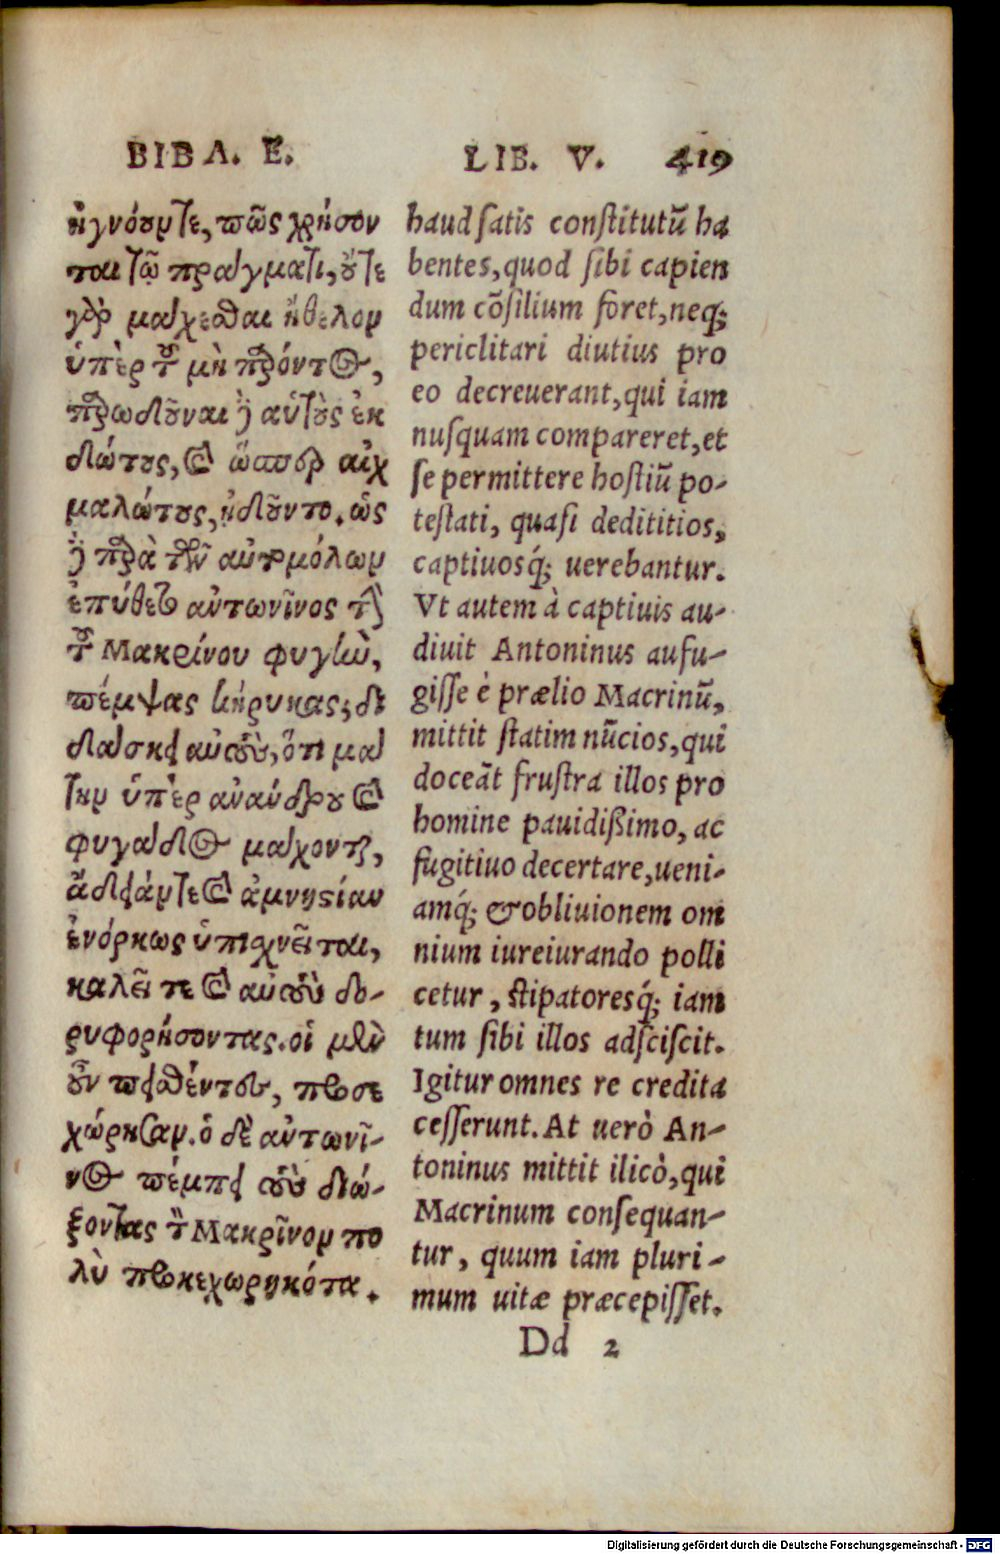 ΒΙΒΛ. Ε.
ἠγνόουν τε, πῶς χρήσον
ται τῷ πράγματι, οὔτε
γὰρ μάχεσθαι ἤθελον
ὑπὲρ τοῦ μὴ παρόντος,
παραδοῦναι δὲ αὑτοὺς ἐκ
δότους, καὶ ὥσπερ αἰχ
μαλώτους, ᾐδοῦντο. ὡς
δὲ παρὰ τῶν αὐτομόλων
ἐπύθετο ἀντωνῖνος τὴν
τοῦ Μακρίνου φυγὴν,
πέμψας κήρυκας, δι
δάσκει αὐτοὺς, ὅτι μά
την ὑπὲρ ἀνάνδρου καὶ
φυγάδος μάχονται,
ἄδειάν τε καὶ ἀμνηστίαν
ἐνόρκως ὑπισχνεῖται,
καλεῖ τε καὶ αὐτοὺς δο-
ρυφορήσοντας. οἱ μὲν
οὖν πεισθέντες, προσε
χώρησαν. ὁ δὲ ἀντωνῖ-
νος πέμπει τοὺς διώ-
ξοντας τὸν Μακρῖνον πο
λὺ προκεχωρηκότα.
LIB. V. 419
haud satis constitutũ ha
bentes, quod sibi capien
dum cõsilium foret, neq;
periclitari diutius pro
eo decreuerant, qui iam
nusquam compareret, et
se permittere hostiũ po-
testati, quasi dedititios,
captiuosq́; uerebantur.
Vt autem à captiuis au-
diuit Antoninus aufu-
gisse è prælio Macrinũ,
mittit statim nũcios, qui
doceãt frustra illos pro
homine pauidißimo, ac
fugitiuo decertare, ueni-
amq́; & obliuionem om
nium iureiurando polli
cetur, stipatoresq́; iam
tum sibi illos adsciscit.
Igitur omnes re credita
cesserunt. At uerò An-
toninus mittit ilicò, qui
Macrinum consequan-
tur, quum iam pluri-
mum uitæ præcepisset.
Dd 2
Digitalisierung gefördert durch die Deutsche Forschungsgemeinschaft - DFG